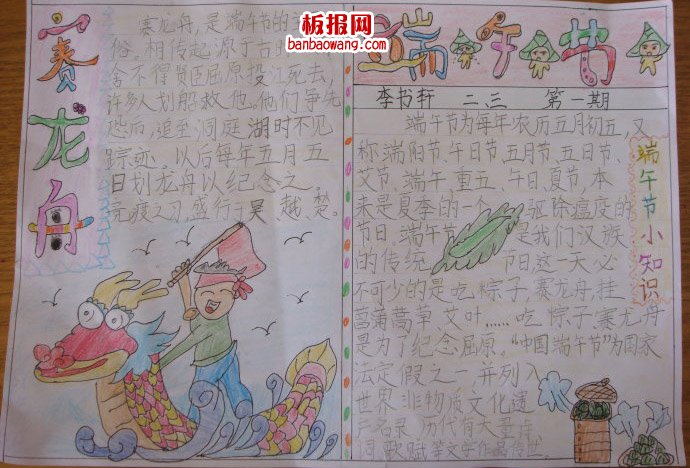 板报网
banbaowang.com
赛龙舟
赛龙舟，是端午节的主
俗。相传起源于古时
舍不得贤臣屈原投江死去，
许多人划船救他。他们争先
恐后，追至洞庭湖时不见
踪迹。以后每年五月五
日划龙舟以纪念之。
竞渡之习，盛行于吴、越、楚。
端午节
李书轩 二.三 第一期
端午节为每年农历五月初五，又
称端阳节、午日节、五月节、五日节、
艾节、端午、重五、午日、夏节，本
来是夏季的一个驱除瘟疫的
节日，端午节是我们汉族
的传统节日，这一天必
不可少的是吃粽子，赛龙舟，挂
菖蒲蒿草、艾叶……吃粽子、赛龙舟
是为了纪念屈原。“中国端午节”为国家
法定假之一，并列入
世界非物质文化遗
产名录 历代有大量诗
词歌赋等文学作品传世。
端午节小知识